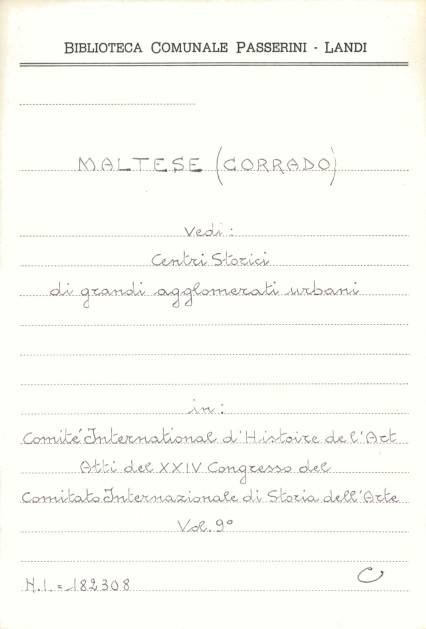 BIBLIOTECA COMUNALE PASSERINI - LANDI
MALTESE (CORRADO)
Vedi:
Centri Storici
di grandi agglomerati urbani
in:
Comité International d'Histoire de l'Art
Atti del XXIV Congresso del
Comitato Internazionale di Storia dell'Arte
Vol. 9°
N.I. = 182308
C